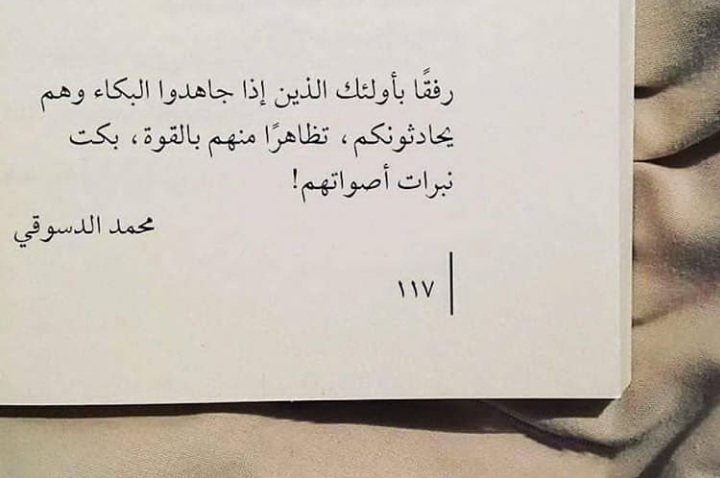 رفقًا بأولئك الذين إذا جاهدوا البكاء وهم
يحادثونكم، تظاهرًا منهم بالقوة، بكت
نبرات أصواتهم!
محمد الدسوقي
١١٧